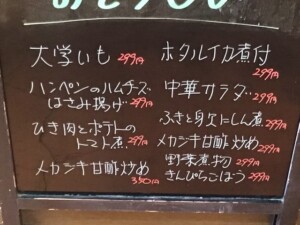 大学いも 299円
ハンペンのハムチーズ
はさみ揚げ 299円
ひき肉とポテトの
トマト煮 299円
メカジキ甘酢炒め
350円
ホタルイカ煮付
299円
中華サラダ 299円
ふきと身欠にしん煮
299円
メカジキ甘酢炒め 299円
野菜煮物 299円
きんぴらごぼう 299円